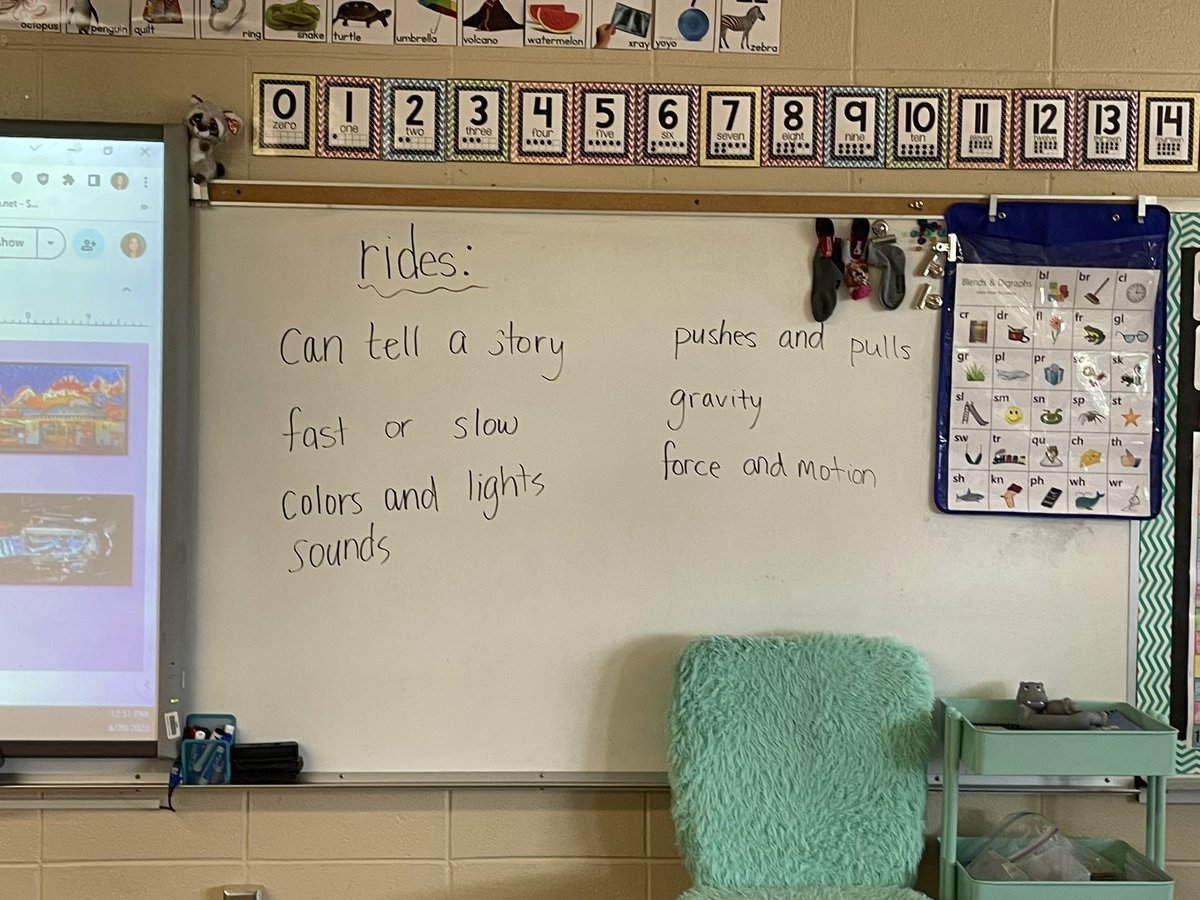 octopus penguin quilt ring snake turtle umbrella volcano watermelon xray yoyo zebra
0 1 2 3 4 5 6 7 8 9 10 11 12 13 14
zero one two three four five six seven eight nine ten eleven twelve thirteen
show
rides:
Can tell a story
fast or slow
colors and lights
sounds
pushes and pulls
gravity
force and motion
Blends & Digraphs
bl br cl
cr dr fl fr gl
gr pl pr sc sk
sl sm sn sp st
sw tr qu ch th
sh kn ph wh wr
12:51 PM